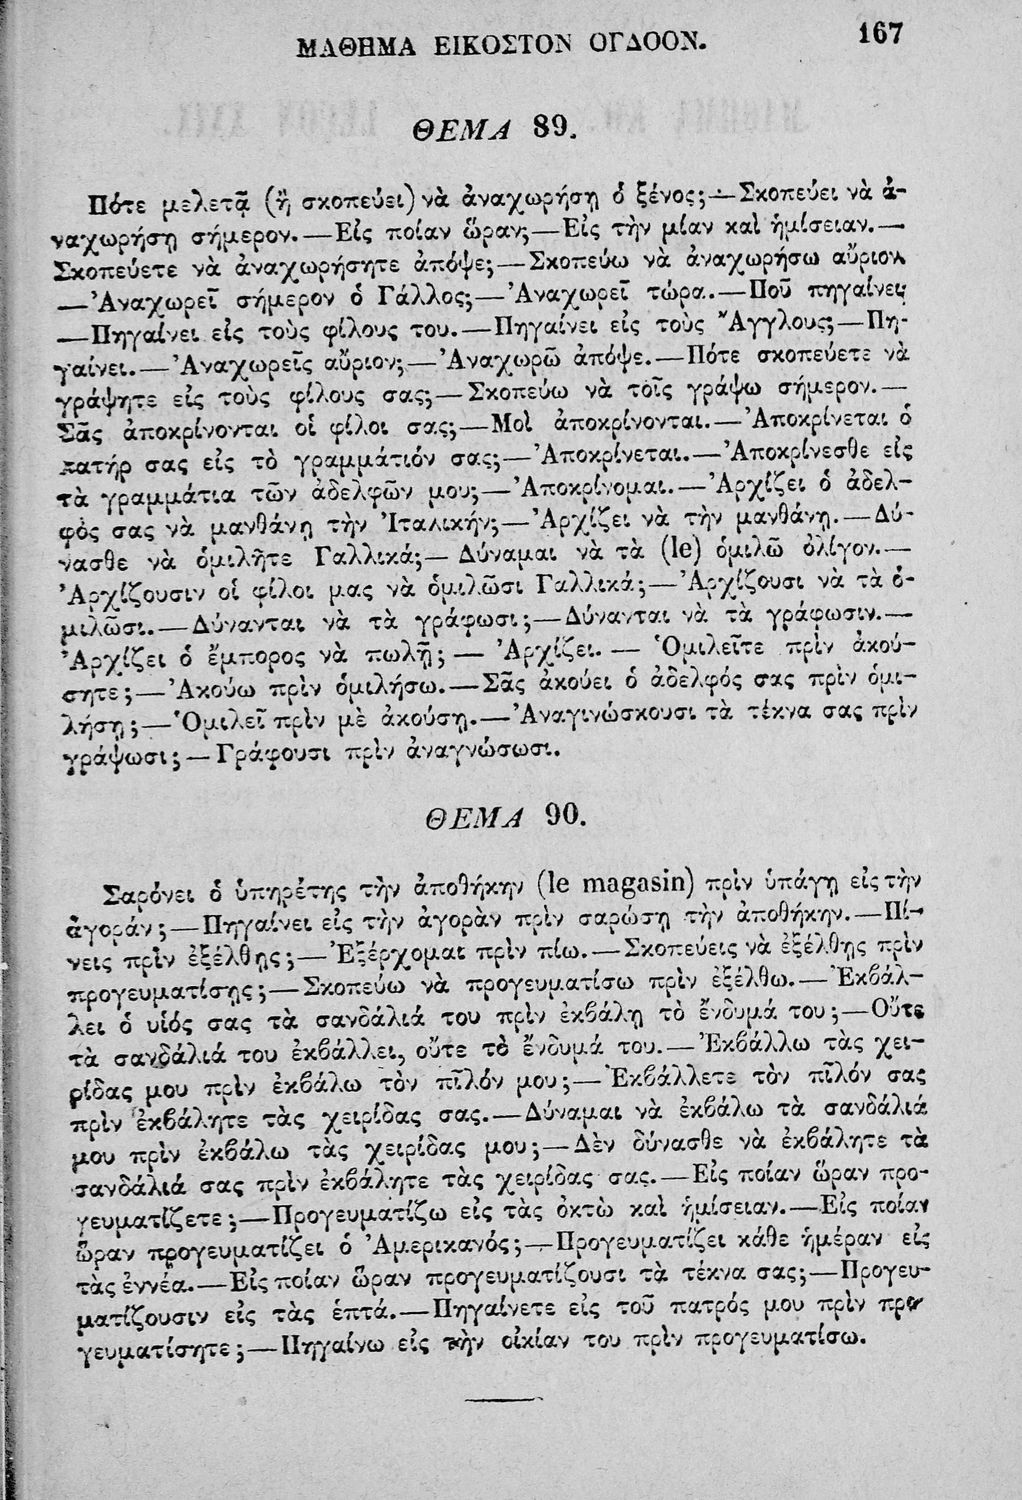 ΜΑΘΗΜΑ ΕΙΚΟΣΤΟΝ ΟΓΔΟΟΝ.
167
ΘΕΜΑ 89.
Πότε μελετᾷ (ἢ σκοπεύει) νὰ ἀναχωρήσῃ ὁ ξένος;—Σκοπεύει νὰ ἀ-
ναχωρήσῃ σήμερον.—Εἰς ποίαν ὥραν;—Εἰς τὴν μίαν καὶ ἡμίσειαν.—
Σκοπεύετε νὰ ἀναχωρήσητε ἀπόψε;—Σκοπεύω νὰ ἀναχωρήσω αὔριον
—Ἀναχωρεῖ σήμερον ὁ Γάλλος;—Ἀναχωρεῖ τώρα.—Ποῦ πηγαίνει;
—Πηγαίνει εἰς τοὺς φίλους του.—Πηγαίνει εἰς τοὺς Ἄγγλους;—Πη-
γαίνει.—Ἀναχωρεῖς αὔριον;—Ἀναχωρῶ ἀπόψε.—Πότε σκοπεύετε νὰ
γράψητε εἰς τοὺς φίλους σας;—Σκοπεύω νὰ τοῖς γράψω σήμερον.—
Σᾶς ἀποκρίνονται οἱ φίλοι σας;—Μοὶ ἀποκρίνονται.—Ἀποκρίνεται ὁ
πατήρ σας εἰς τὸ γραμμάτιόν σας;—Ἀποκρίνεται.—Ἀποκρίνεσθε εἰς
τὰ γραμμάτια τῶν ἀδελφῶν μου;—Ἀποκρίνομαι.—Ἀρχίζει ὁ ἀδελ-
φός σας νὰ μανθάνῃ τὴν Ἰταλικήν;—Ἀρχίζει νὰ τὴν μανθάνῃ.—Δύ-
νασθε νὰ ὁμιλῆτε Γαλλικά;—Δύναμαι νὰ τὰ (le) ὁμιλῶ ὀλίγον.—
Ἀρχίζουσιν οἱ φίλοι μας νὰ ὁμιλῶσι Γαλλικά;—Ἀρχίζουσι νὰ τὰ ὁ-
μιλῶσι.—Δύνανται νὰ τὰ γράφωσι;—Δύνανται νὰ τὰ γράφωσιν.—
Ἀρχίζει ὁ ἔμπορος νὰ πωλῇ;—Ἀρχίζει.—Ὁμιλεῖτε πρὶν ἀκού-
σητε;—Ἀκούω πρὶν ὁμιλήσω.—Σᾶς ἀκούει ὁ ἀδελφός σας πρὶν ὁμι-
λήσῃ;—Ὁμιλεῖ πρὶν μὲ ἀκούσῃ.—Ἀναγινώσκουσι τὰ τέκνα σας πρὶν
γράψωσι;—Γράφουσι πρὶν ἀναγνώσωσι.
ΘΕΜΑ 90.
Σαρόνει ὁ ὑπηρέτης τὴν ἀποθήκην (le magasin) πρὶν ὑπάγῃ εἰς τὴν
ἀγοράν;—Πηγαίνει εἰς τὴν ἀγορὰν πρὶν σαρώσῃ τὴν ἀποθήκην.—Πί-
νεις πρὶν ἐξέλθῃς;—Ἐξέρχομαι πρὶν πίω.—Σκοπεύεις νὰ ἐξέλθῃς πρὶν
προγευματίσῃς;—Σκοπεύω νὰ προγευματίσω πρὶν ἐξέλθω.—Ἐκβάλ-
λει ὁ υἱός σας τὰ σανδάλιά του πρὶν ἐκβάλῃ τὸ ἔνδυμά του;—Οὔτε
τὰ σανδάλιά του ἐκβάλλει, οὔτε τὸ ἔνδυμά του.—Ἐκβάλλω τὰς χει-
ρίδας μου πρὶν ἐκβάλω τὸν πῖλόν μου;—Ἐκβάλλετε τὸν πῖλόν σας
πρὶν ἐκβάλητε τὰς χειρίδας σας.—Δύναμαι νὰ ἐκβάλω τὰ σανδάλιά
μου πρὶν ἐκβάλω τὰς χειρίδας μου;—Δὲν δύνασθε νὰ ἐκβάλητε τὰ
σανδάλιά σας πρὶν ἐκβάλητε τὰς χειρίδας σας.—Εἰς ποίαν ὥραν προ-
γευματίζετε;—Προγευματίζω εἰς τὰς ὀκτὼ καὶ ἡμίσειαν.—Εἰς ποίαν
ὥραν προγευματίζει ὁ Ἀμερικανός;—Προγευματίζει κάθε ἡμέραν εἰς
τὰς ἐννέα.—Εἰς ποίαν ὥραν προγευματίζουσι τὰ τέκνα σας;—Προγευ-
ματίζουσιν εἰς τὰς ἑπτά.—Πηγαίνετε εἰς τοῦ πατρός μου πρὶν προ-
γευματίσητε;—Πηγαίνω εἰς τὴν οἰκίαν του πρὶν προγευματίσω.